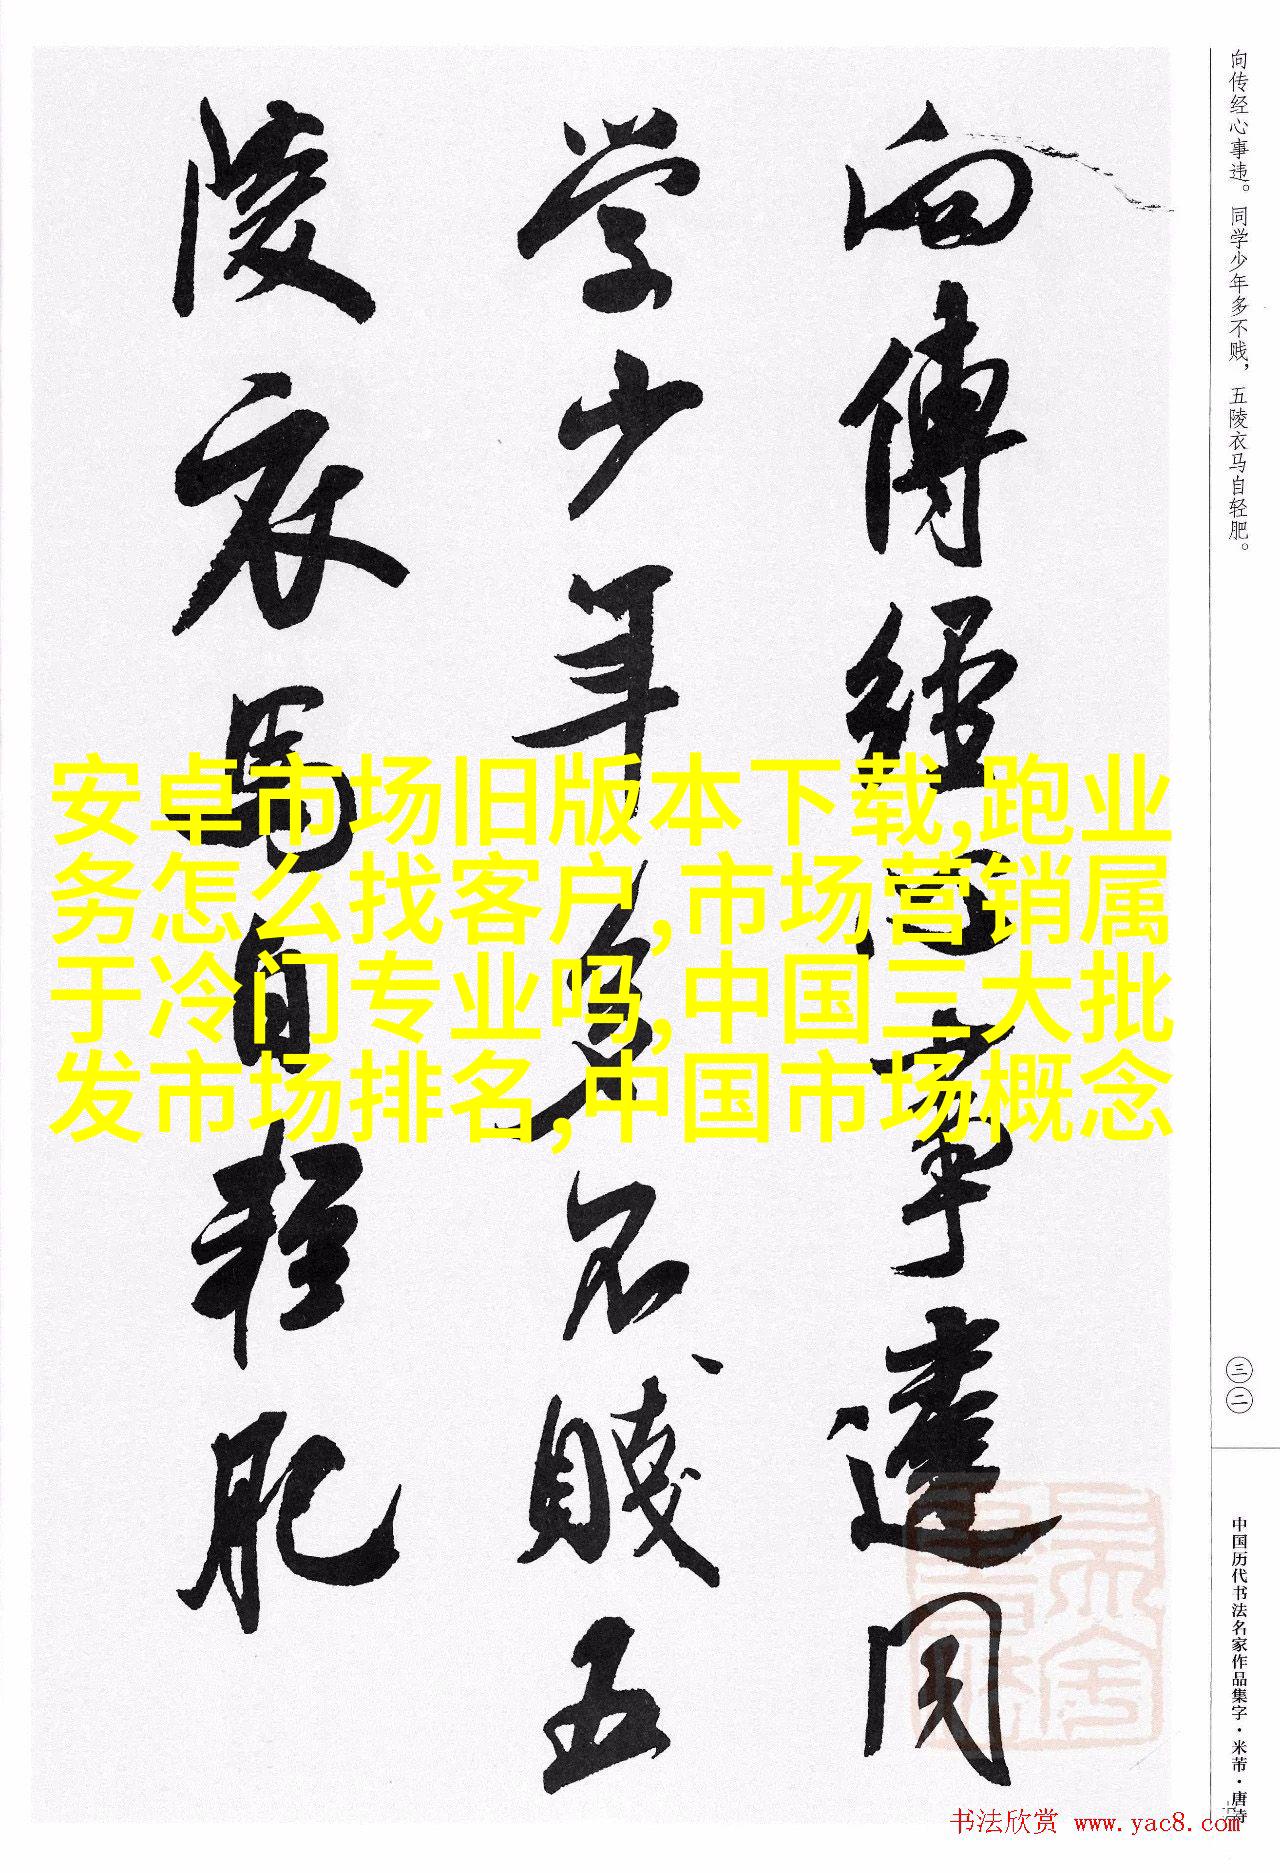 向传经心事违。同学少年多不贱，五陵衣马自轻肥。
三二
中国历代书法名家作品集字·米芾·唐诗
向傳經心事違同
学少年多不賤五
陵衣馬自輕肥
安卓市场旧版本下载,跑业
务怎么找客户,市场营销属
于冷门专业吗,中国三大批
发市场排名,中国市场概念
书法欣赏 www.yac8.com